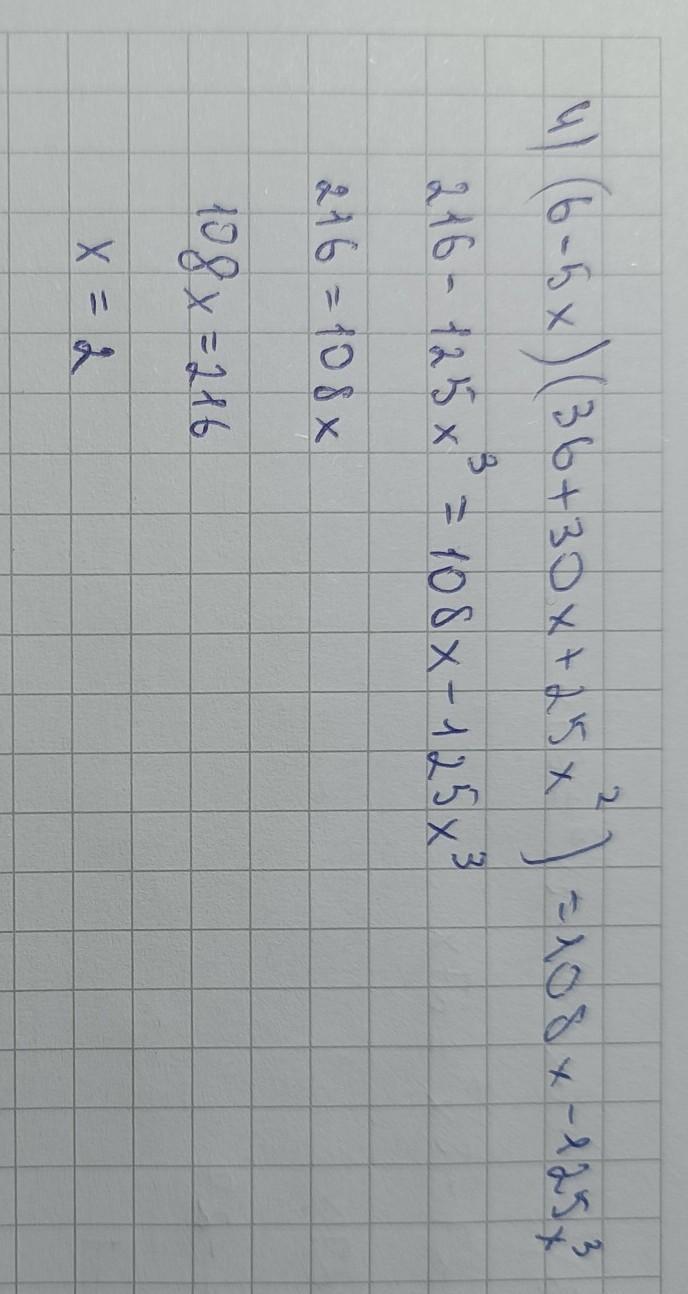 4) (6-5x)(36+30x+25x²)=108x-125x³
216-125x³=108x-125x³
216=108x
108x=216
x=2